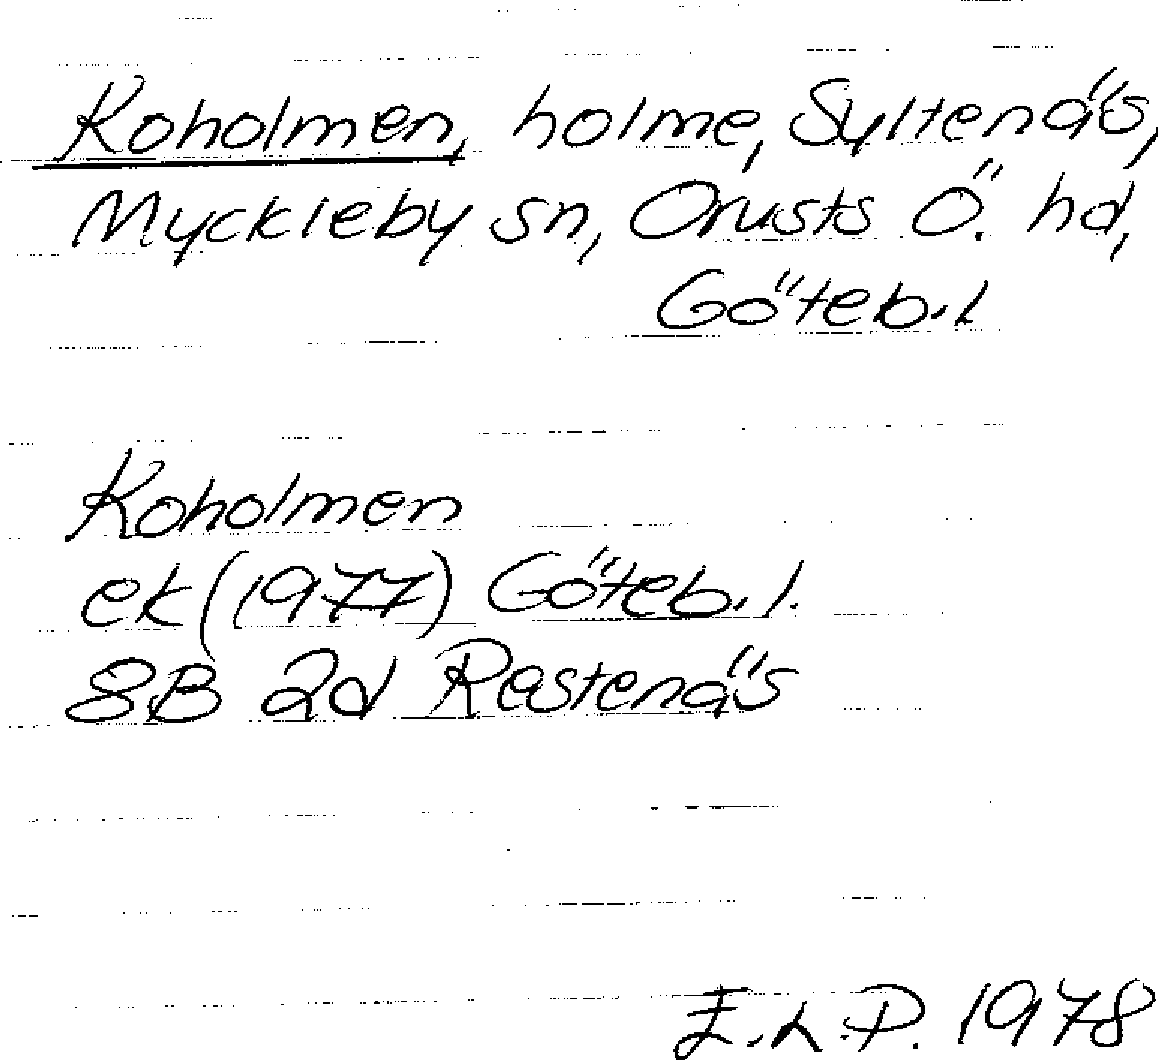 Koholmen, holme, Syltenäs,
Myckleby sn, Orusts Ö. hd,
Göteb.l
Koholmen
ek (1977) Göteb.l.
8B 2d Restenäs
E.L.P. 1978